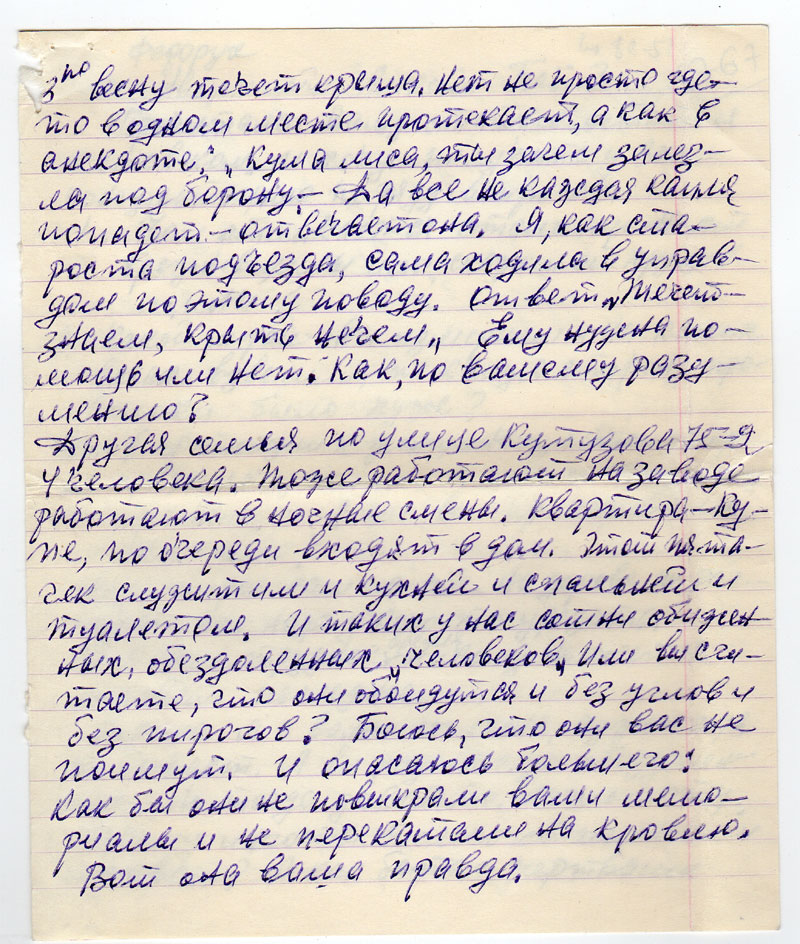 3 по весну течет крыша. Нет не просто где-
то в одном месте протекает, а как в
анекдоте: „ Кума лиса, ты зачем залез-
ла под борону. – Да все не каждая капля
попадет – отвечает она. Я, как ста-
роста подъезда, сама ходила в управ-
дом по этому поводу. Ответ „ Течет –
знаем, крыть нечем „ Ему нужна по-
мощь или нет. Как, по вашему разу-
мению?
Другая семья по улице Кутузова 75-9
4 человека. Тоже работают на заводе
работают в ночные смены. Квартира – Ку-
пе, по очереди входят в дом. Этот пята-
чек служит им и кухней и спальней и
туалетом. И таких у нас сотни обижен
ных, обездоленных „ человеков „ Или вы счи-
таете, что они обойдутся и без углов и
без пирогов? Боюсь, что они вас не
поймут. И опасаюсь большего:
Как бы они не повыкрали ваши мемо-
риалы и не перекатали на кровлю.
Вот она ваша правда.